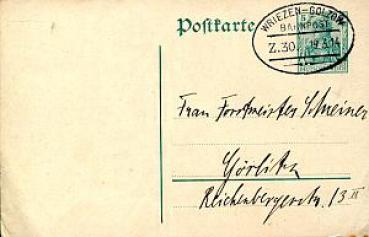 Postkarte
WRIEZEN-GOLZOW
BAHNPOST
Z.30. 19.3.14
Frau Forstmeister Schreiner
Görlitz
Reichenbergerstr. 13 II